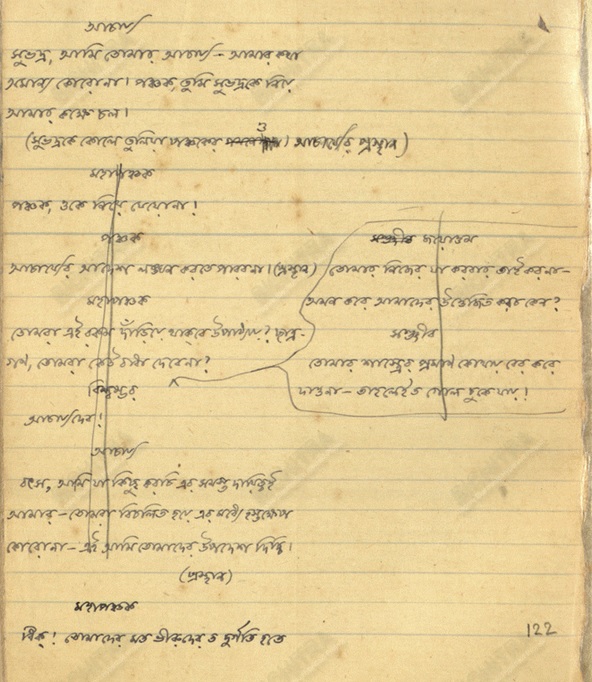 আচার্য্য
সুভদ্র, আমি তোমার আচার্য্য - আমার কথা
অমান্য কোরোনা। পঞ্চক, তুমি সুভদ্রকে নিয়ে
আমার কক্ষে চল।
(সুভদ্রকে কোলে তুলিয়া পঞ্চকের ও আচার্য্যের প্রস্থান)
মহাপঞ্চক
পঞ্চক, ওকে নিয়ে যেয়োনা!
পঞ্চক
আচার্য্যের আদেশ লঙ্ঘন করতে পারবনা। (প্রস্থান)
মহাপঞ্চক
তোমরা এই রকম দাঁড়িয়ে থাকবে উপাধ্যায়? ছাত্র-
গণ, তোমরা কেউ বাধা দেবেনা?
বিশ্বম্ভর
আচার্য্যদেব!
আচার্য্য
বৎস, আমি যা কিছু করচি এর সমস্ত দায়িত্বই
আমার - তোমরা বিচলিত হয়ে এর মধ্যে হস্তক্ষেপ
কোরোনা - এই আমি তোমাদের উপদেশ দিচ্চি।
(প্রস্থান)
মহাপঞ্চক
ধিক্! তোমাদের মত ভীরুদের ত দুর্গতি হতে
সঞ্জীব জয়োত্তম
তোমার নিজের যা করবার তাই করনা -
অমন করে আমাদের উত্তেজিত করচ কেন?
সঞ্জীব
তোমার শাস্ত্রের প্রমাণ কোথায় বের করে
দাওনা - তাহলেইত গোল চুকে যায়!
122